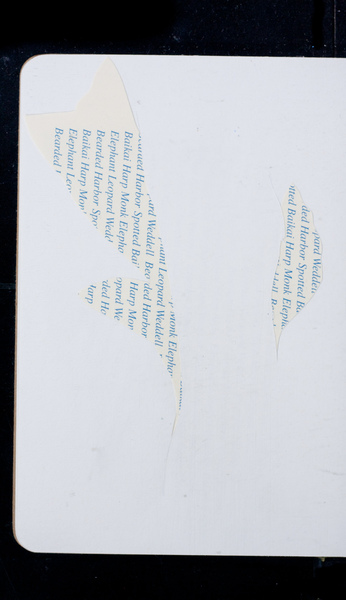 Monk Elepha
ant Leopard Weddell
ard Weddell Bea ded Harbor
arded Harbor Spotted Bai Harp Mon
Baikai Harp Monk Elepha opard We
Elephant Leopard Wedd ded Ho
Bearded Harbor Spo arp
Baikai Harp Mon
Elephant Leo
Bearded
pard Weddell
ded Harbor Spotted Ba
tted Baikai Harp Monk Elepha